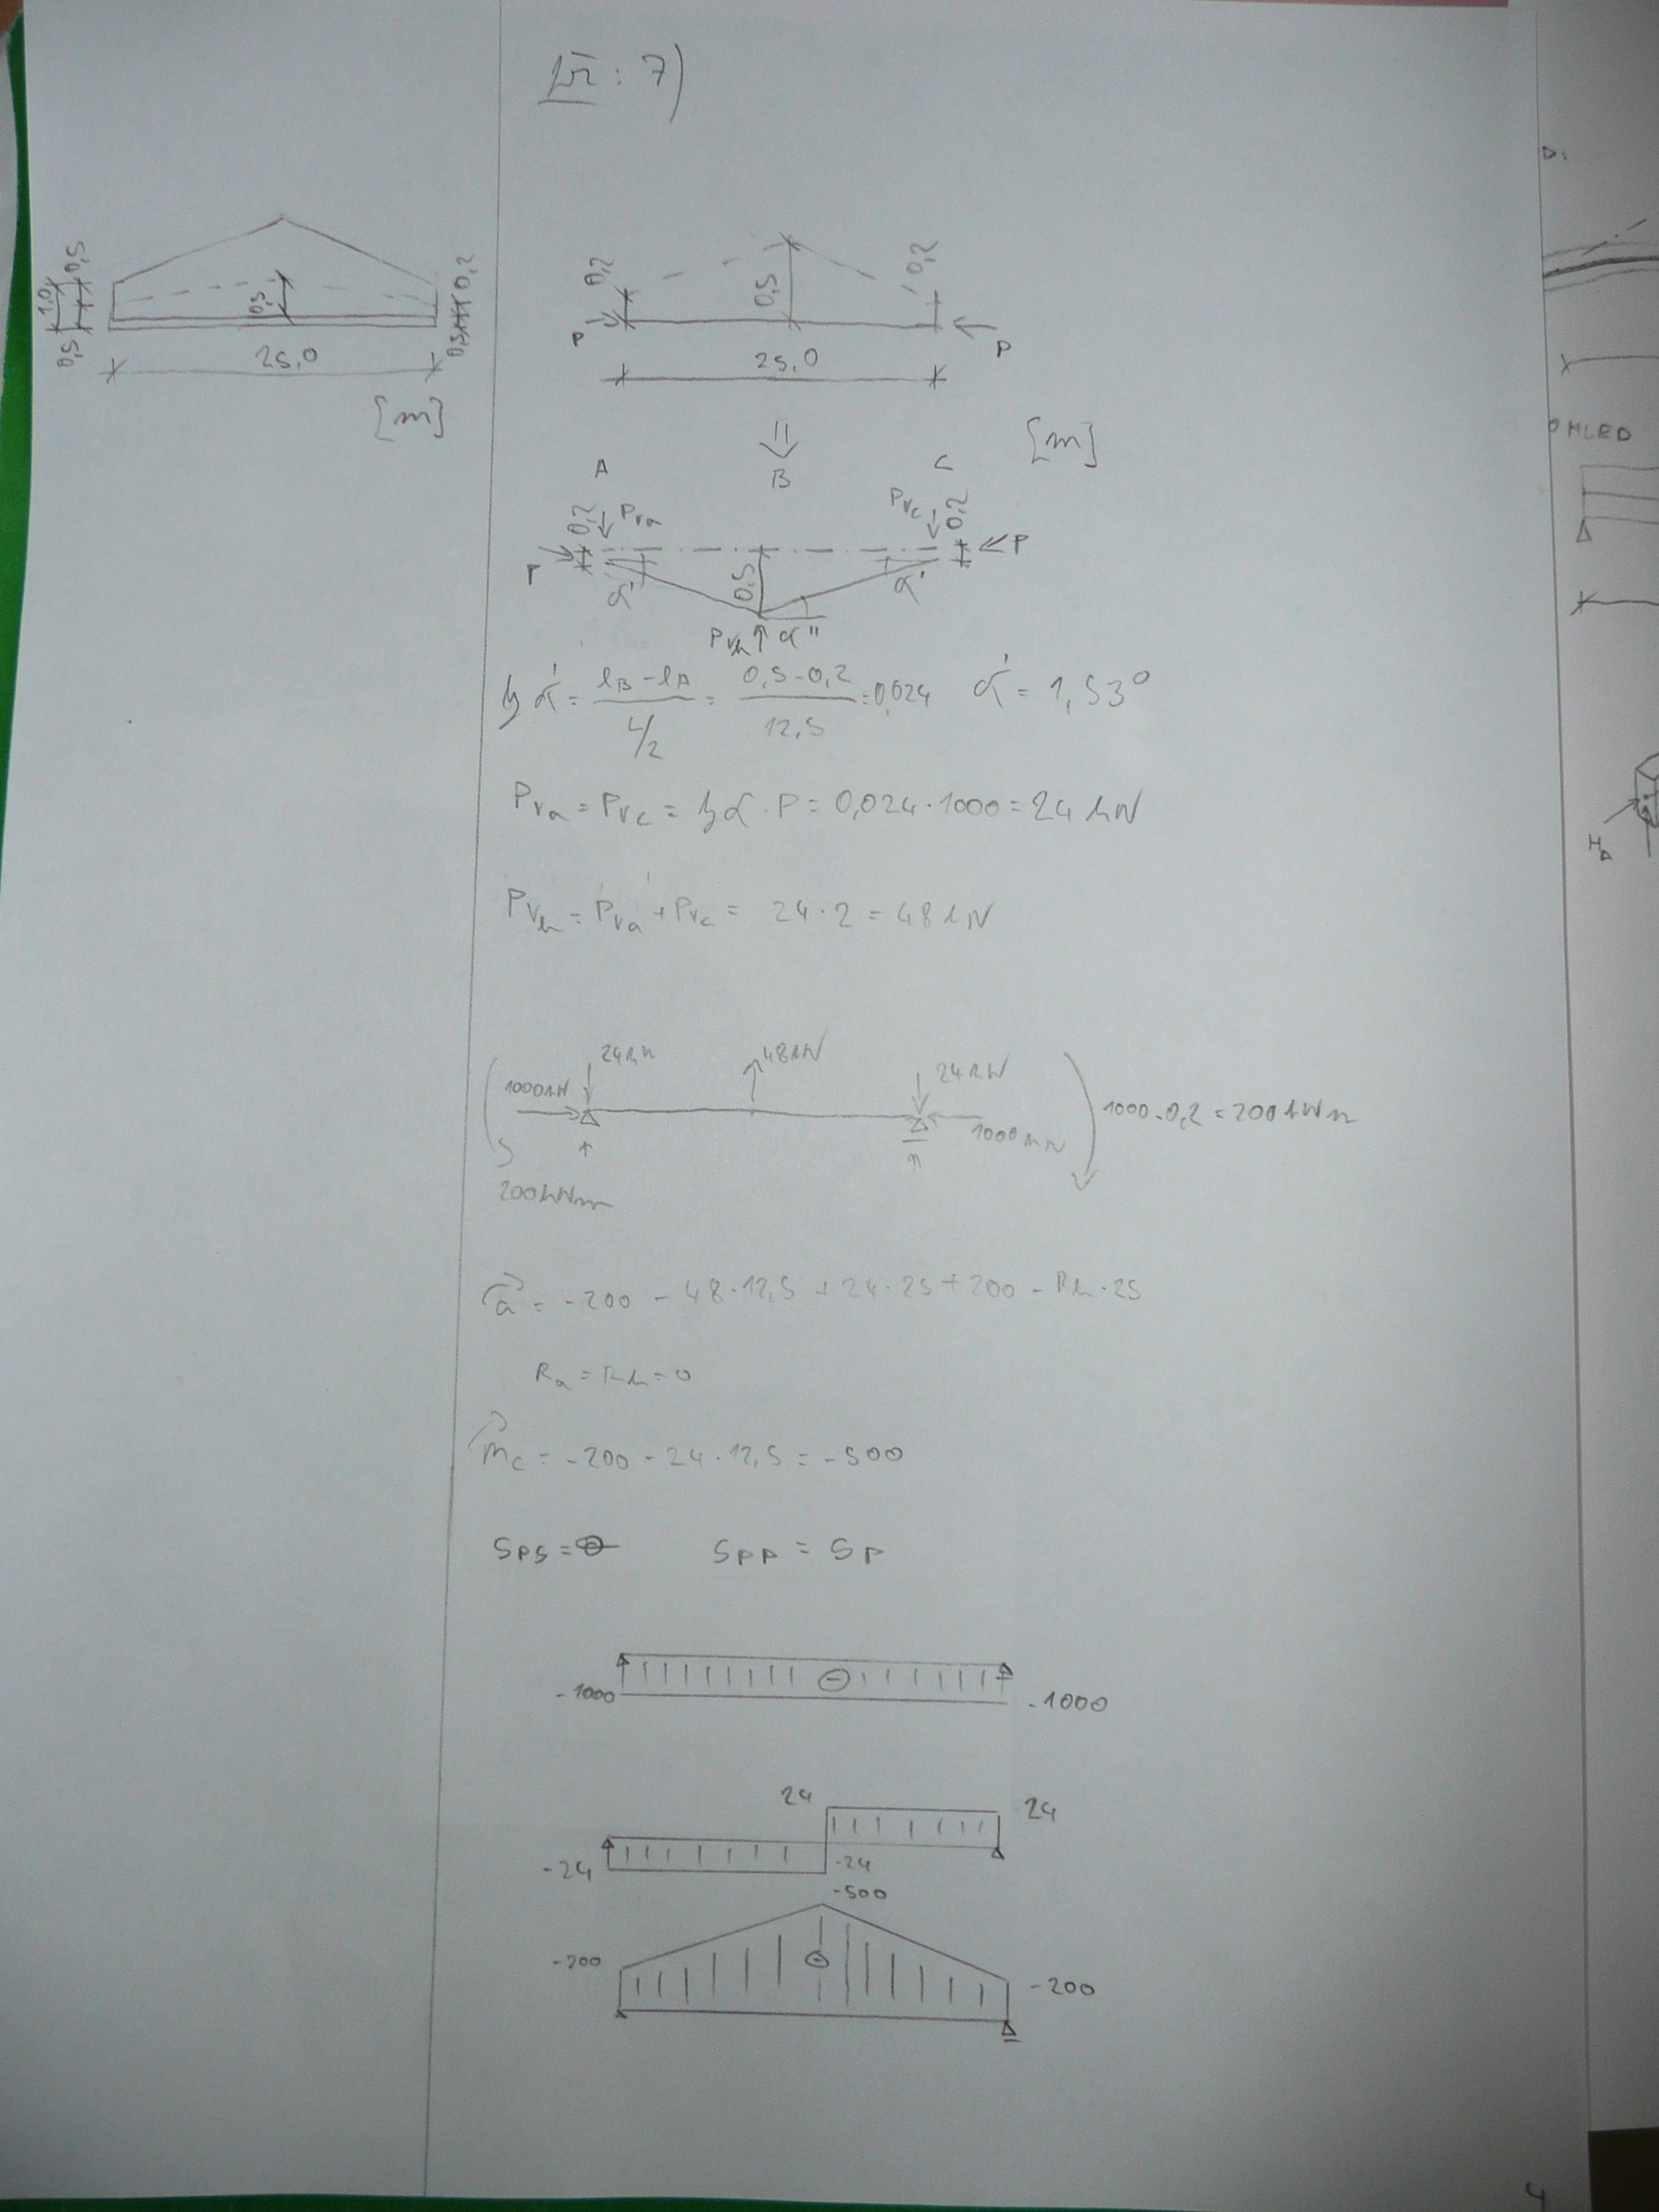 Př: 7)
0,5 1,0 0,5 0,5 0,2
25,0
[m]
0,2 0,5 0,2
P P
25,0
[m]
A B C
0,2 Pva Pvc 0,2
P α' 0,5 α' P
Pvb α''
tg α' = (lB - lA) / (L/2) = (0,5 - 0,2) / 12,5 = 0,024 α' = 1,53°
Pva = Pvc = tg α · P = 0,024 · 1000 = 24 kN
Pvb = Pva + Pvc = 24 · 2 = 48 kN
24 kN 48 kN 24 kN
1000 kN 1000 kN 1000 · 0,2 = 200 kNm
200 kNm
a = -200 - 48 · 12,5 + 24 · 25 + 200 - Rb · 25
Ra = Rb = 0
mc = -200 - 24 · 12,5 = -500
SPS = 0 SPP = SP
-1000 -1000
24 24
-24 -24
-500
-200 -200
D:
OHLED
4